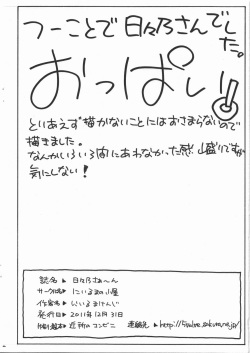 つーことで日々乃さんでした。
おっぱい!
とりあえず描かないことにはおさまらないので
描きました。
なんかいろいろ間にあわなかった感山盛りですが
気にしない!
誌名 ▶ 日々乃さぁ〜ん
サークル名▶ にいるまの小屋
作者名▶ にいるまけんじ
発行日▶ 2011年12月31日
印刷・製本▶ 近所のコンビニ 連絡先▶